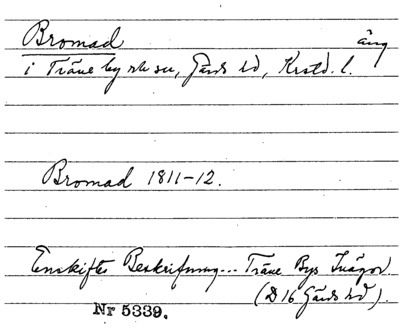 Bromad äng
i Träne by o sn, Gärds hd, Krstd. l.
Bromad 1811-12.
Enskiftes Beskrifning... Träne Bys Inägor
(D 16 Gärds hd).
Nr 5339.